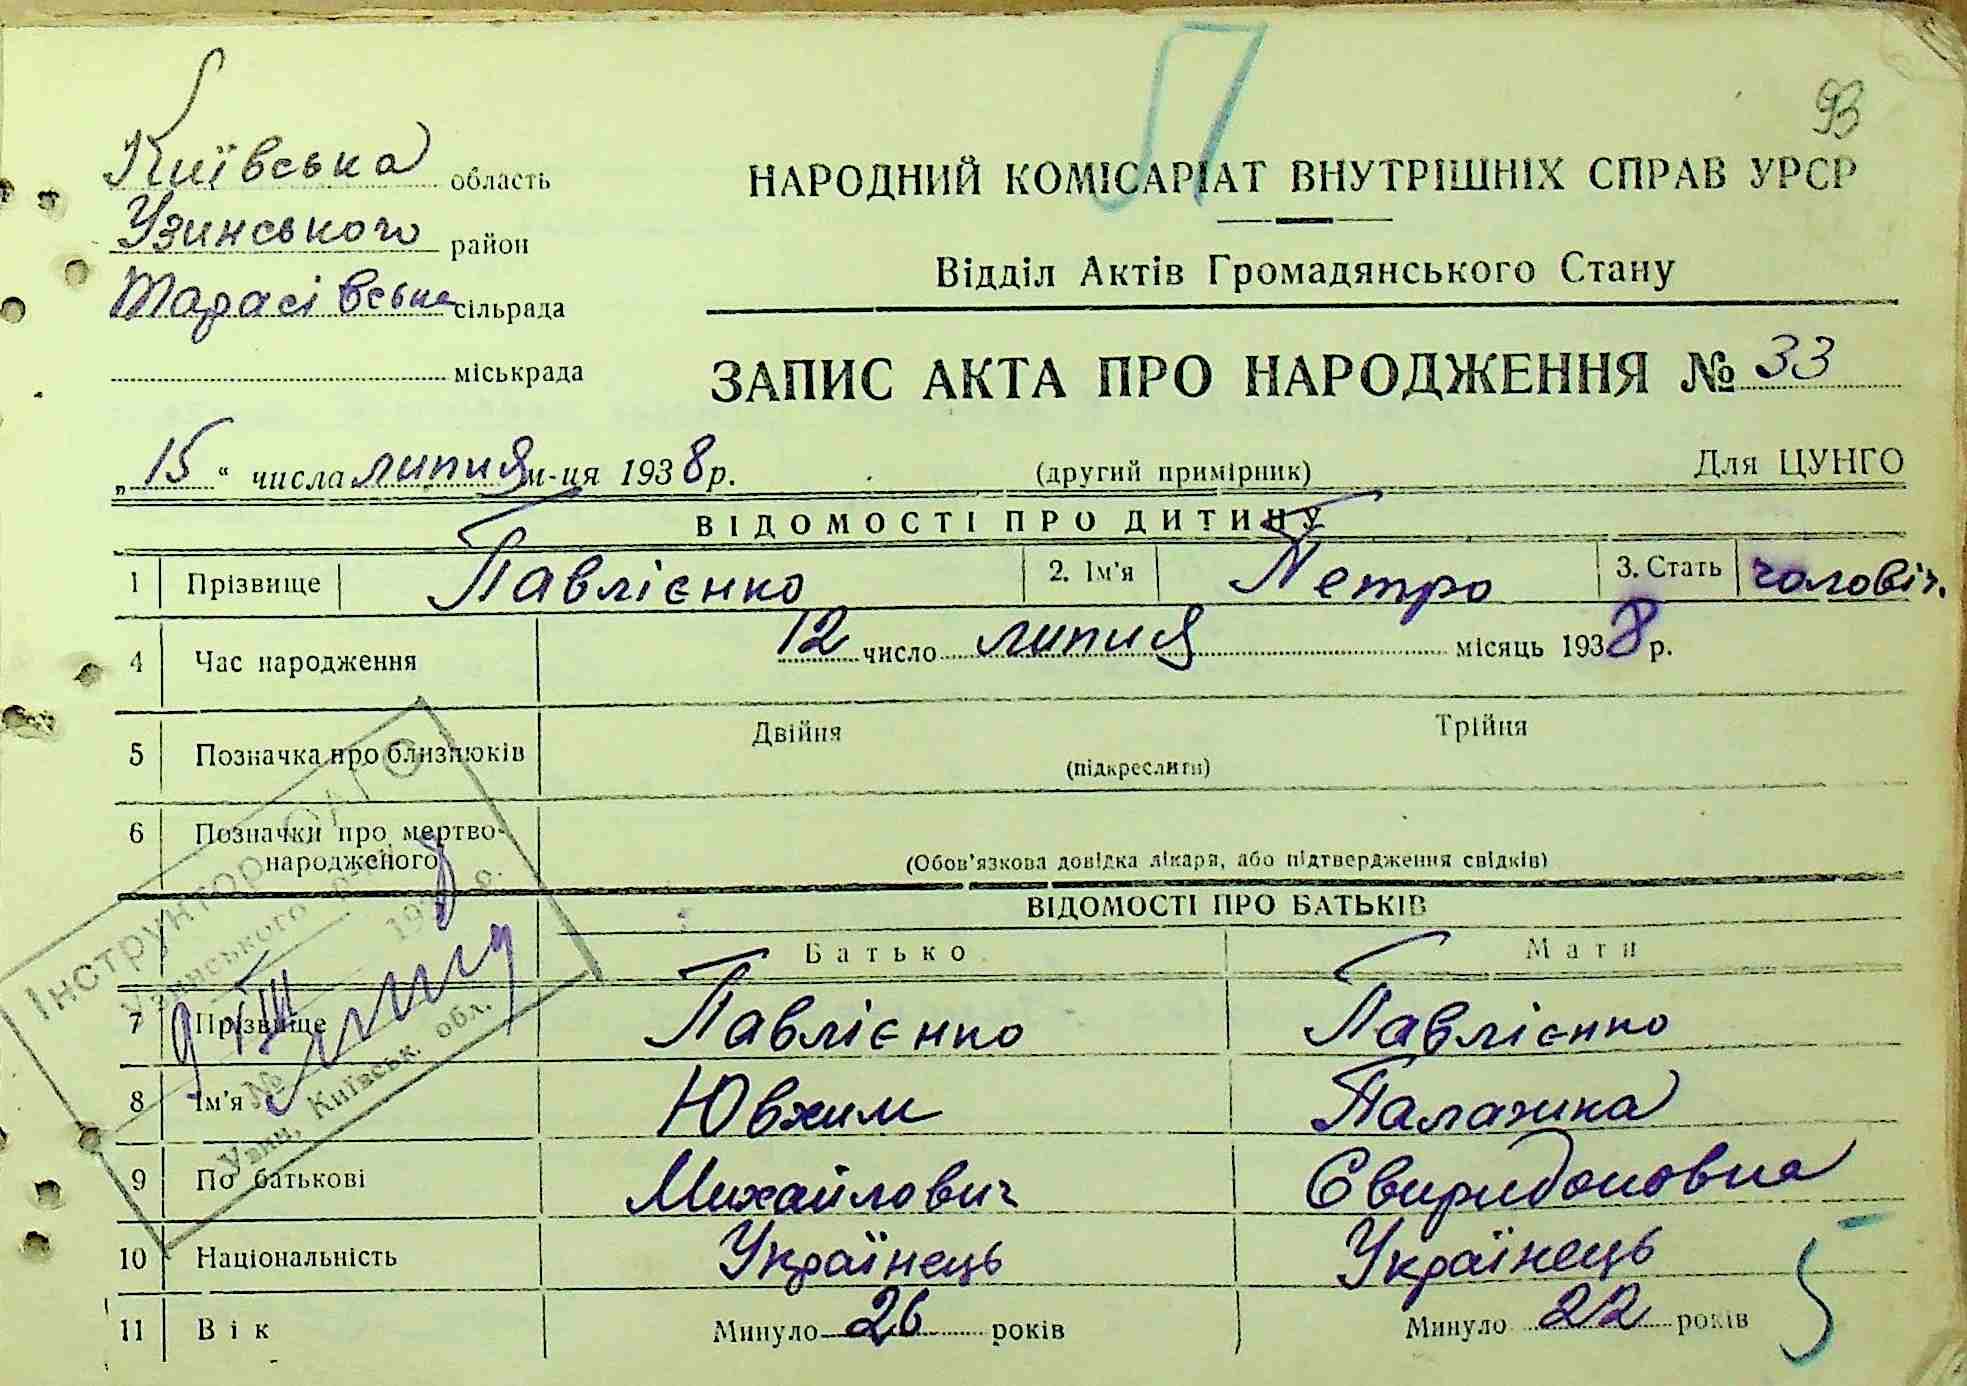 П
93
Київська область
Узинського район
Тарасівська сільрада
міськрада
НАРОДНИЙ КОМІСАРІАТ ВНУТРІШНІХ СПРАВ УРСР
Відділ Актів Громадянського Стану
ЗАПИС АКТА ПРО НАРОДЖЕННЯ № 33
„15“ числа липня м-ця 1938 р. (другий примірник) Для ЦУНГО
ВІДОМОСТІ ПРО ДИТИНУ
1 Прізвище Павлієнко 2. Ім'я Петро 3. Стать чоловіч.
4 Час народження 12 число липня місяць 1938 р.
5 Позначка про близнюків Двійня Трійня
(підкреслити)
6 Позначки про мертвонародженого
(Обов'язкова довідка лікаря, або підтвердження свідків)
ВІДОМОСТІ ПРО БАТЬКІВ
Батько Мати
7 Прізвище Павлієнко Павлієнко
8 Ім'я Ювхим Палажка
9 По батькові Михайлович Свиридоновна
10 Національність Українець Українець
11 Вік Минуло 26 років Минуло 22 років
5
Інструктор ОАГС
Узинського р-ну
9 VIII 1938 р.
№
Узин, Київськ. обл.